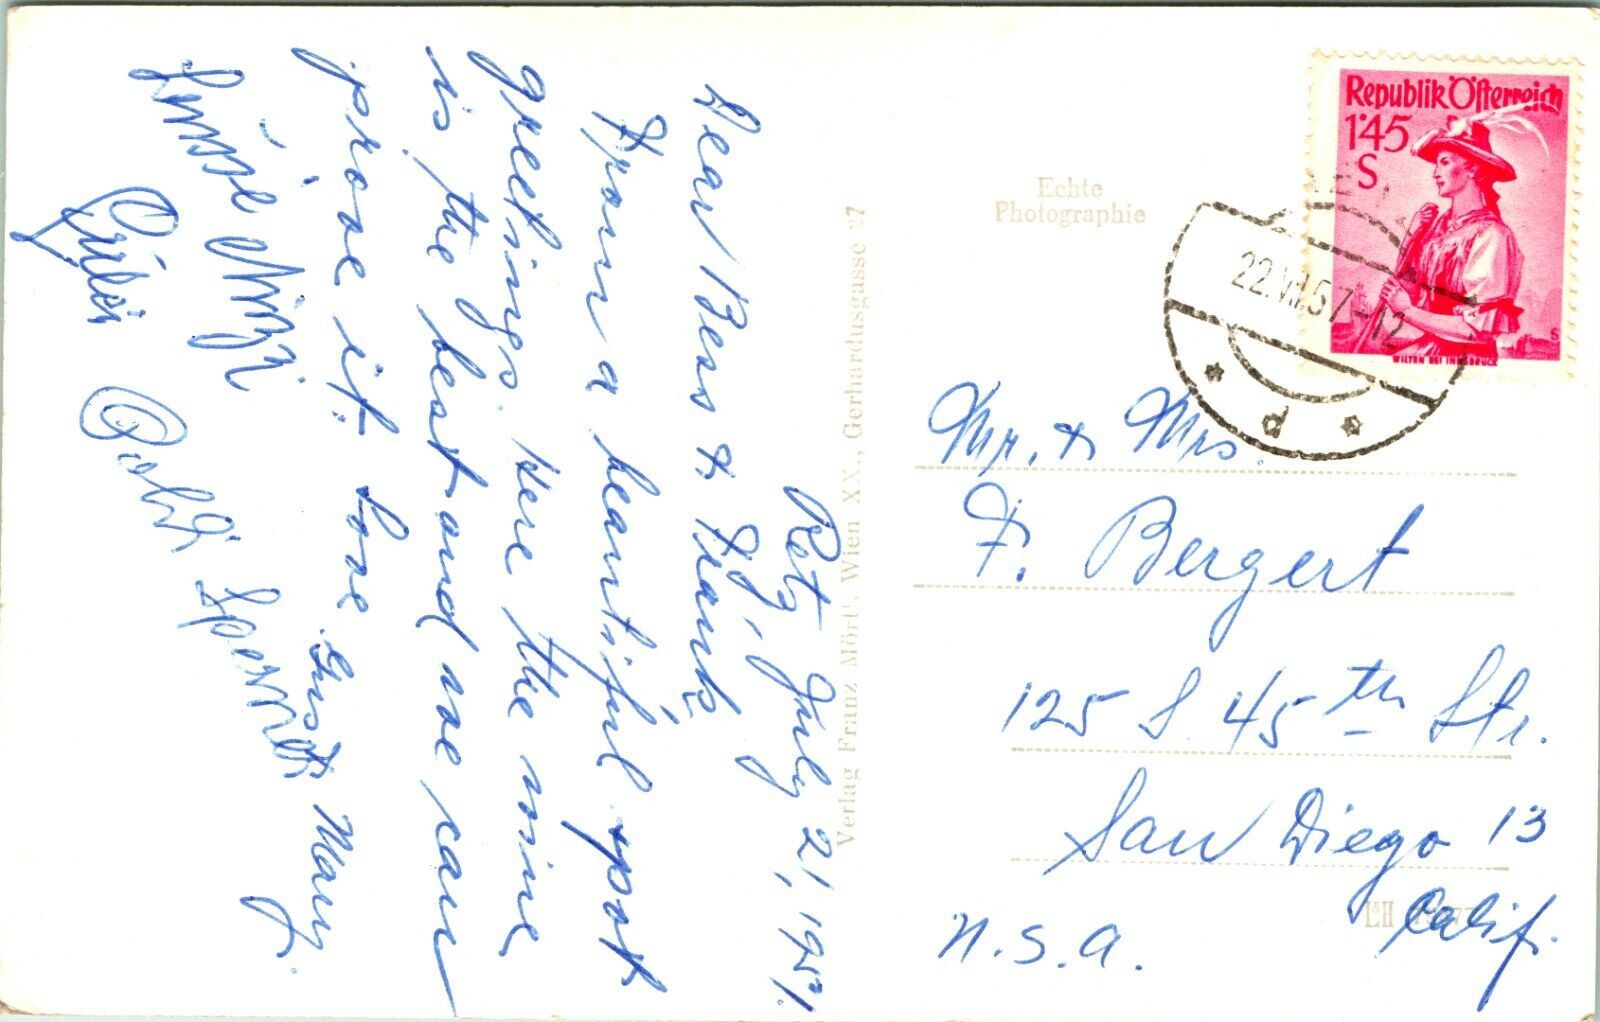 Retz, July 21, 1957.
Dear Bess & Frank
From a beautiful spot
greetings. Here the wine
is the best and we can
prove it. Love
Gusti Mary.
Mizzi
Poldi
Verlag Franz Mörtl, Wien XX., Gerhardusgasse 27
Echte
Photographie
Republik Österreich
1'45
S
WILTEN BEI INNSBRUCK
6
22.VII.57-12
d
Mr. & Mrs.
F. Bergert
125 S. 45th Str.
San Diego 13
Calif.
U.S.A.
L&H